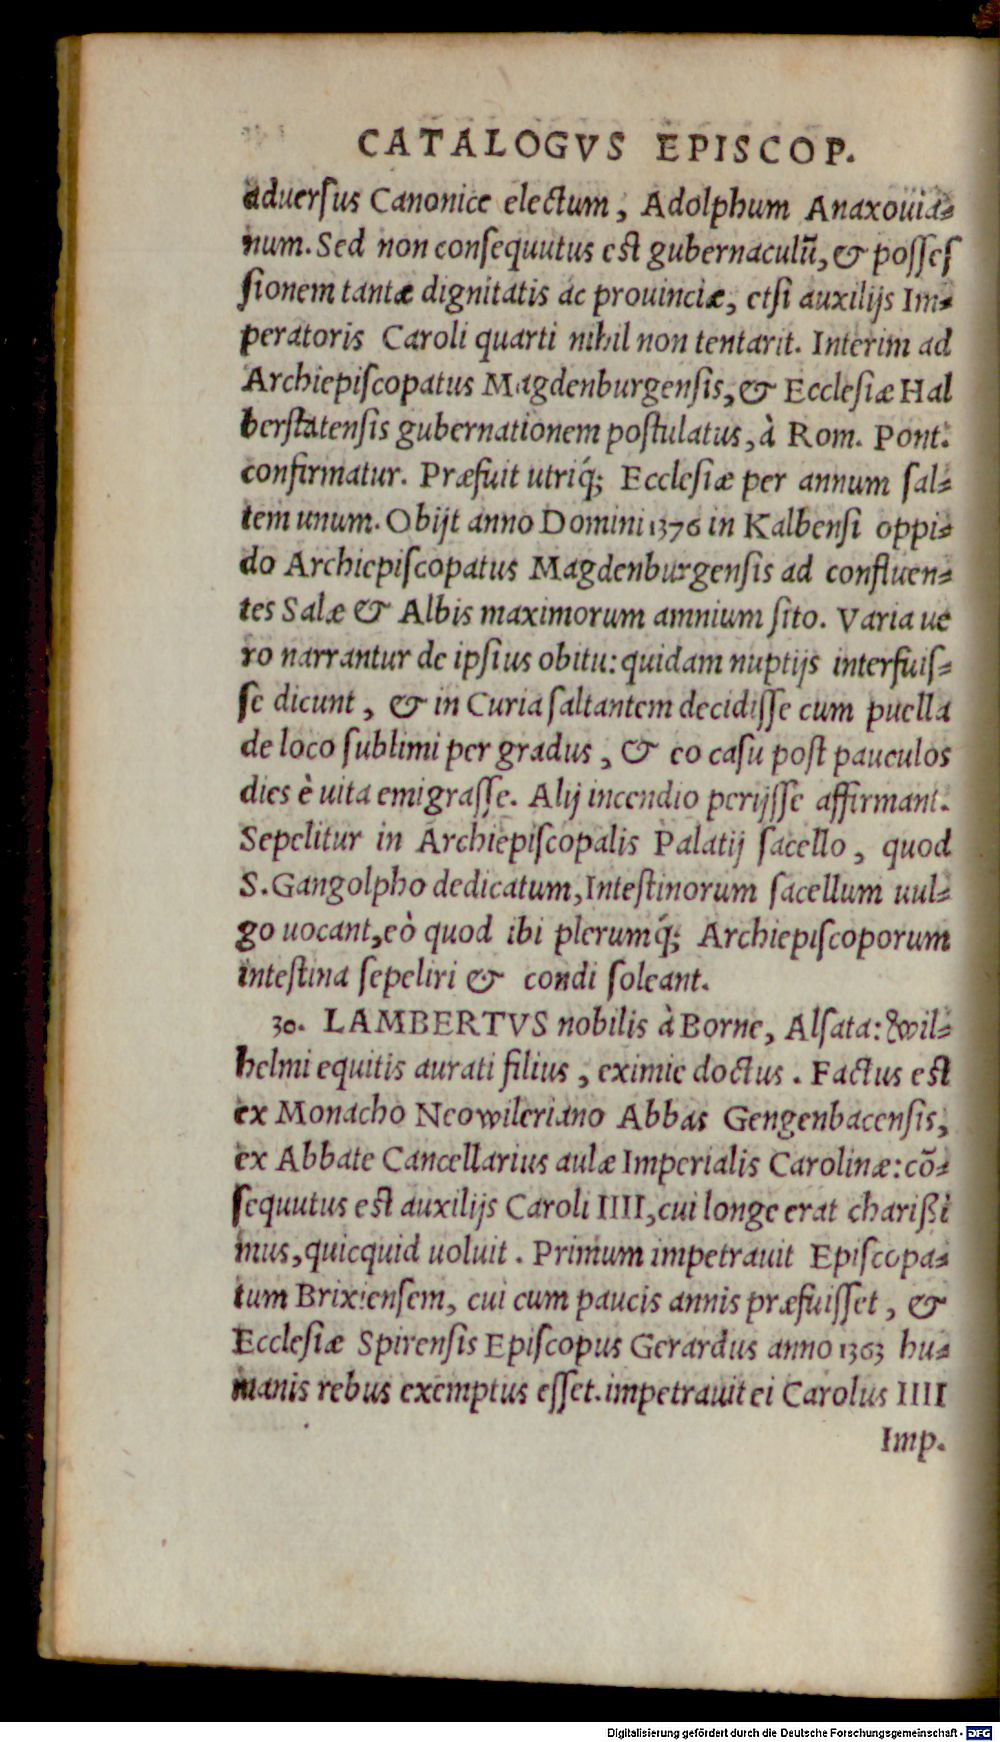 CATALOGVS EPISCOP.
aduerſus Canonice electum, Adolphum Anaxouia-
num. Sed non conſequutus est gubernaculũ, & poſſeſ
ſionem tantæ dignitatis ac prouinciæ, etſi auxilijs Im-
peratoris Caroli quarti nihil non tentarit. Interim ad
Archiepiſcopatus Magdenburgenſis, & Eccleſiæ Hal
berſtatenſis gubernationem poſtulatus, à Rom. Pont.
confirmatur. Præfuit utriq́; Eccleſiæ per annum ſal-
tem unum. Obijt anno Domini 1376 in Kalbenſi oppi-
do Archiepiſcopatus Magdenburgenſis ad confluen-
tes Salæ & Albis maximorum amnium ſito. Varia ue
ro narrantur de ipſius obitu: quidam nuptijs interfuiſ-
ſe dicunt, & in Curia ſaltantem decidiſſe cum puella
de loco ſublimi per gradus, & eo caſu poſt pauculos
dies è uita emigraſſe. Alij incendio perijſſe affirmant.
Sepelitur in Archiepiſcopalis Palatij ſacello, quod
S. Gangolpho dedicatum, Inteſtinorum ſacellum uul-
go uocant, eò quod ibi plerumq́; Archiepiſcoporum
inteſtina ſepeliri & condi ſoleant.
30. LAMBERTVS nobilis à Borne, Alſata: Wil-
helmi equitis aurati filius, eximie doctus. Factus est
ex Monacho Neowileriano Abbas Gengenbacenſis,
ex Abbate Cancellarius aulæ Imperialis Carolinæ: cõ-
ſequutus est auxilijs Caroli IIII, cui longe erat chariſſi
mus, quicquid uoluit. Primum impetrauit Epiſcopa-
tum Brixienſem, cui cum paucis annis præfuiſſet, &
Eccleſiæ Spirenſis Epiſcopus Gerardus anno 1363 hu-
manis rebus exemptus eſſet. impetrauit ei Carolus IIII
Imp.
Digitalisierung gefördert durch die Deutsche Forschungsgemeinschaft - DFG